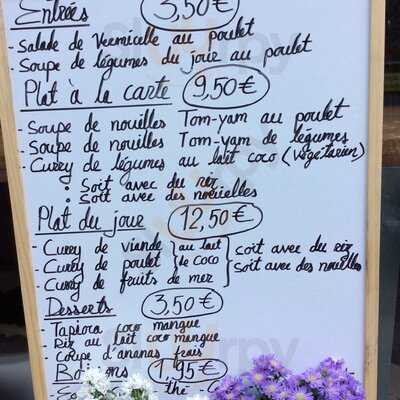 Entrées 3,50€
- Salade de Vermicelle au poulet
- Soupe de légumes du joue au poulet
Plat à la carte 9,50€
- Soupe de nouilles Tom-yam au poulet
- Soupe de nouilles Tom-yam de légumes
- Curry de légumes au lait coco (végétarien)
• Soit avec du riz
• Soit avec des nouielles
Plat du joue 12,50€
- Curry de viande } au lait } soit avec du riz
- Curry de poulet } de coco } soit avec des nouilles
- Curry de fruits de mer
Desserts 3,50€
- Tapiora coco mangue
- Riz au lait coco mangue
- Coupe d'ananas frais
Boissons 1,95€
thé